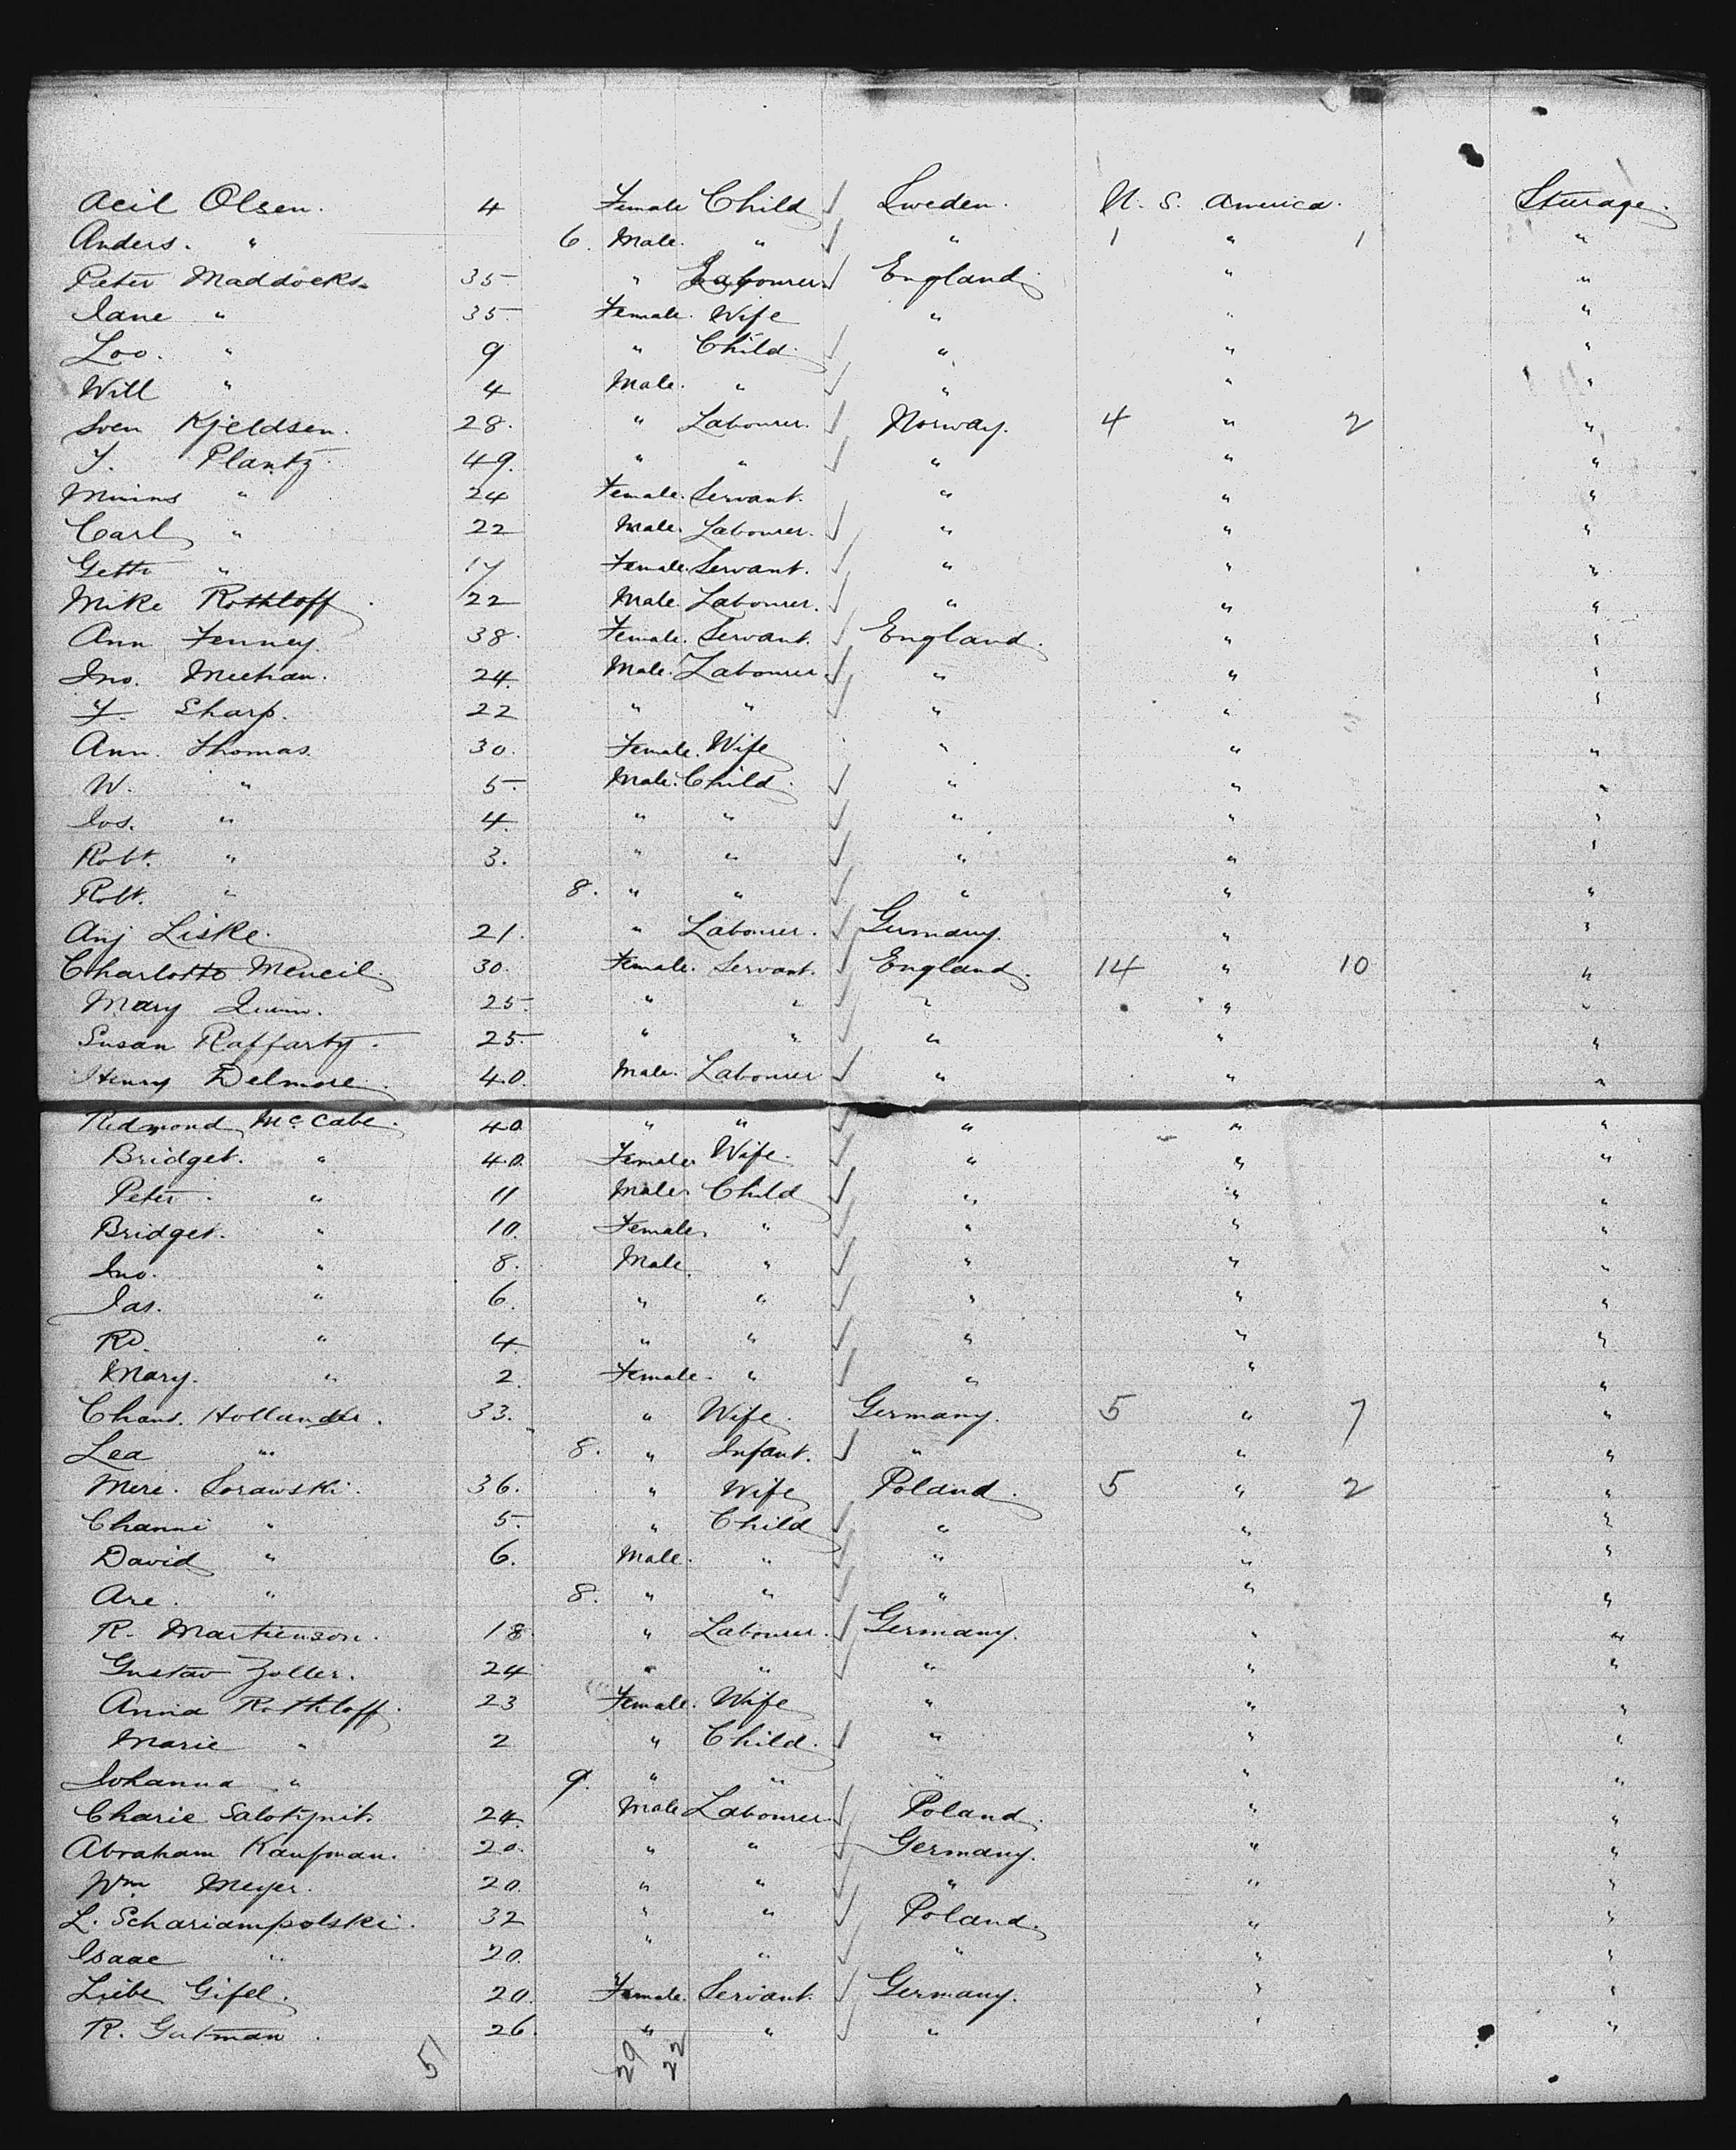 Acil Olsen. 4 Female Child ✓ Sweden. U. S. America. Steerage.
Anders. " 6. Male. " ✓ " 1 " 1 "
Peter Maddocks. 35 " Labourer. ✓ England. " "
Jane " 35. Female. Wife " " "
Loo. " 9 " Child. ✓ " " "
Will " 4 Male. " ✓ " " "
Sven Kjeldsen. 28. " Labourer. ✓ Norway. 4 " 2 "
Y. Plantz. 49. " " ✓ " " "
Minins " 24 Female. Servant. " " "
Carl " 22 Male. Labourer. ✓ " " "
Gette " 17 Female. Servant. ✓ " " "
Mike Rothloff. 22 Male. Labourer. ✓ " " "
Ann Fenney. 38. Female. Servant. ✓ England. " "
Jno. Meehan. 24. Male. Labourer. ✓ " " "
Sharp. 22 " " ✓ " " "
Ann. Thomas. 30. Female. Wife " " "
W. " 5. Male. Child. ✓ " " "
Jos. " 4. " " ✓ " " "
Robt. " 3. " " ✓ " " "
Robt. " 8. " " ✓ " " "
Anj Liske. 21. " Labourer. ✓ Germany. " "
Charlotte Meneil. 30. Female. Servant. ✓ England. 14 " 10 "
Mary Quinn. 25. " " ✓ " " "
Susan Raffarty. 25. " " ✓ " " "
Henry Delmore. 40. Male. Labourer ✓ " " "
Redmond McCabe. 40 " " ✓ " " "
Bridget. " 40. Female. Wife. ✓ " " "
Peter. " 11 Male. Child ✓ " " "
Bridget. " 10. Female. " ✓ " " "
Jno. " 8. Male. " ✓ " " "
Jas. " 6. " " ✓ " " "
Rd. " 4. " " ✓ " " "
Mary. " 2. Female. " ✓ " " "
Chans. Hollander. 33. " Wife. Germany. 5 " 7 "
Lea " 8. " Infant. ✓ " " "
Mere. Sorawski. 36. " Wife Poland. 5 " 2 "
Channi " 5. " Child ✓ " " "
David " 6. Male. " ✓ " " "
Are. " 8. " " ✓ " " "
R. Martienson. 18. " Labourer. ✓ Germany. " "
Gustav Zoller. 24 " " ✓ " " "
Anna Rothloff. 23 Female. Wife " " "
Marie " 2 " Child. ✓ " " "
Johanna " 9. " " " " "
Charie Salotznit. 24. Male Labourer. ✓ Poland. " "
Abraham Kaufman. 20. " " ✓ Germany. " "
Wm Meyer. 20. " " ✓ " " "
L. Schariampolski. 32 " " ✓ Poland. " "
Isaac " 20. " " ✓ " " "
Liebe Gifel. 20. Female. Servant. ✓ Germany. " "
R. Gutman. 26. " " ✓ " " "
51 29 22